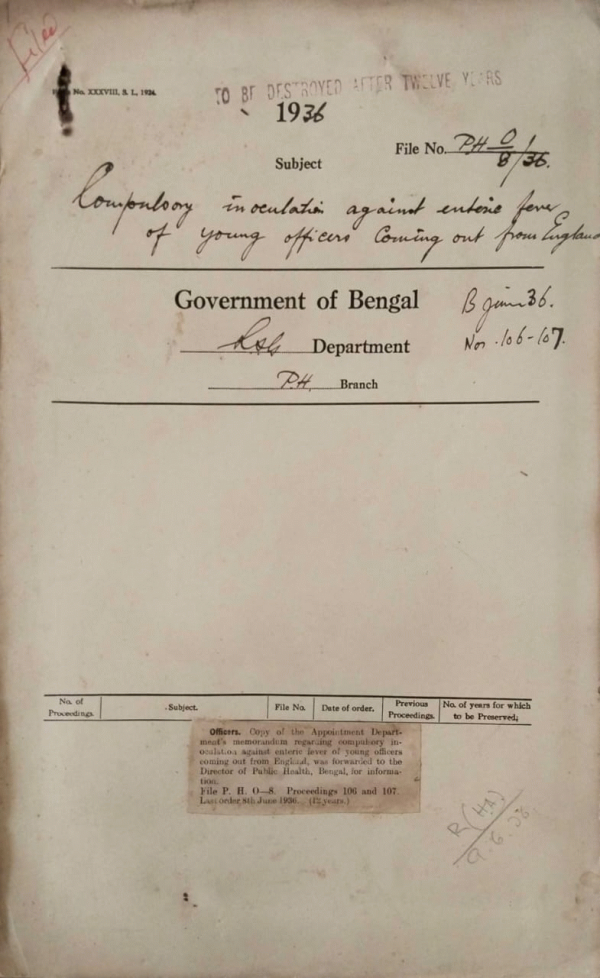 Filed
No. XXXVIII, S. L., 1934.
TO BE DESTROYED AFTER TWELVE YEARS
1936
File No. P.H. O/8/36.
Subject
Compulsory inoculation against enteric fever
of young officers coming out from England
Government of Bengal
B June 36.
LSG Department
Nos. 106-107.
P.H. Branch
No. of Proceedings. Subject. File No. Date of order. Previous Proceedings. No. of years for which to be Preserved;
Officers. Copy of the Appointment Depart-
ment's memorandum regarding compulsory in-
oculation against enteric fever of young officers
coming out from England, was forwarded to the
Director of Public Health, Bengal, for informa-
tion.
File P. H. O—8. Proceedings 106 and 107.
Last order 8th June 1936. (12 years.)
R (H.A)